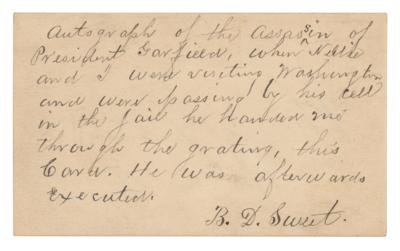 Autograph of the Assassin of
President Garfield, when Nellie
and I were visiting Washington
and were passing by his cell
in the jail he handed me
through the grating, this
Card. He was afterwards
executed.
B. D. Sweet.